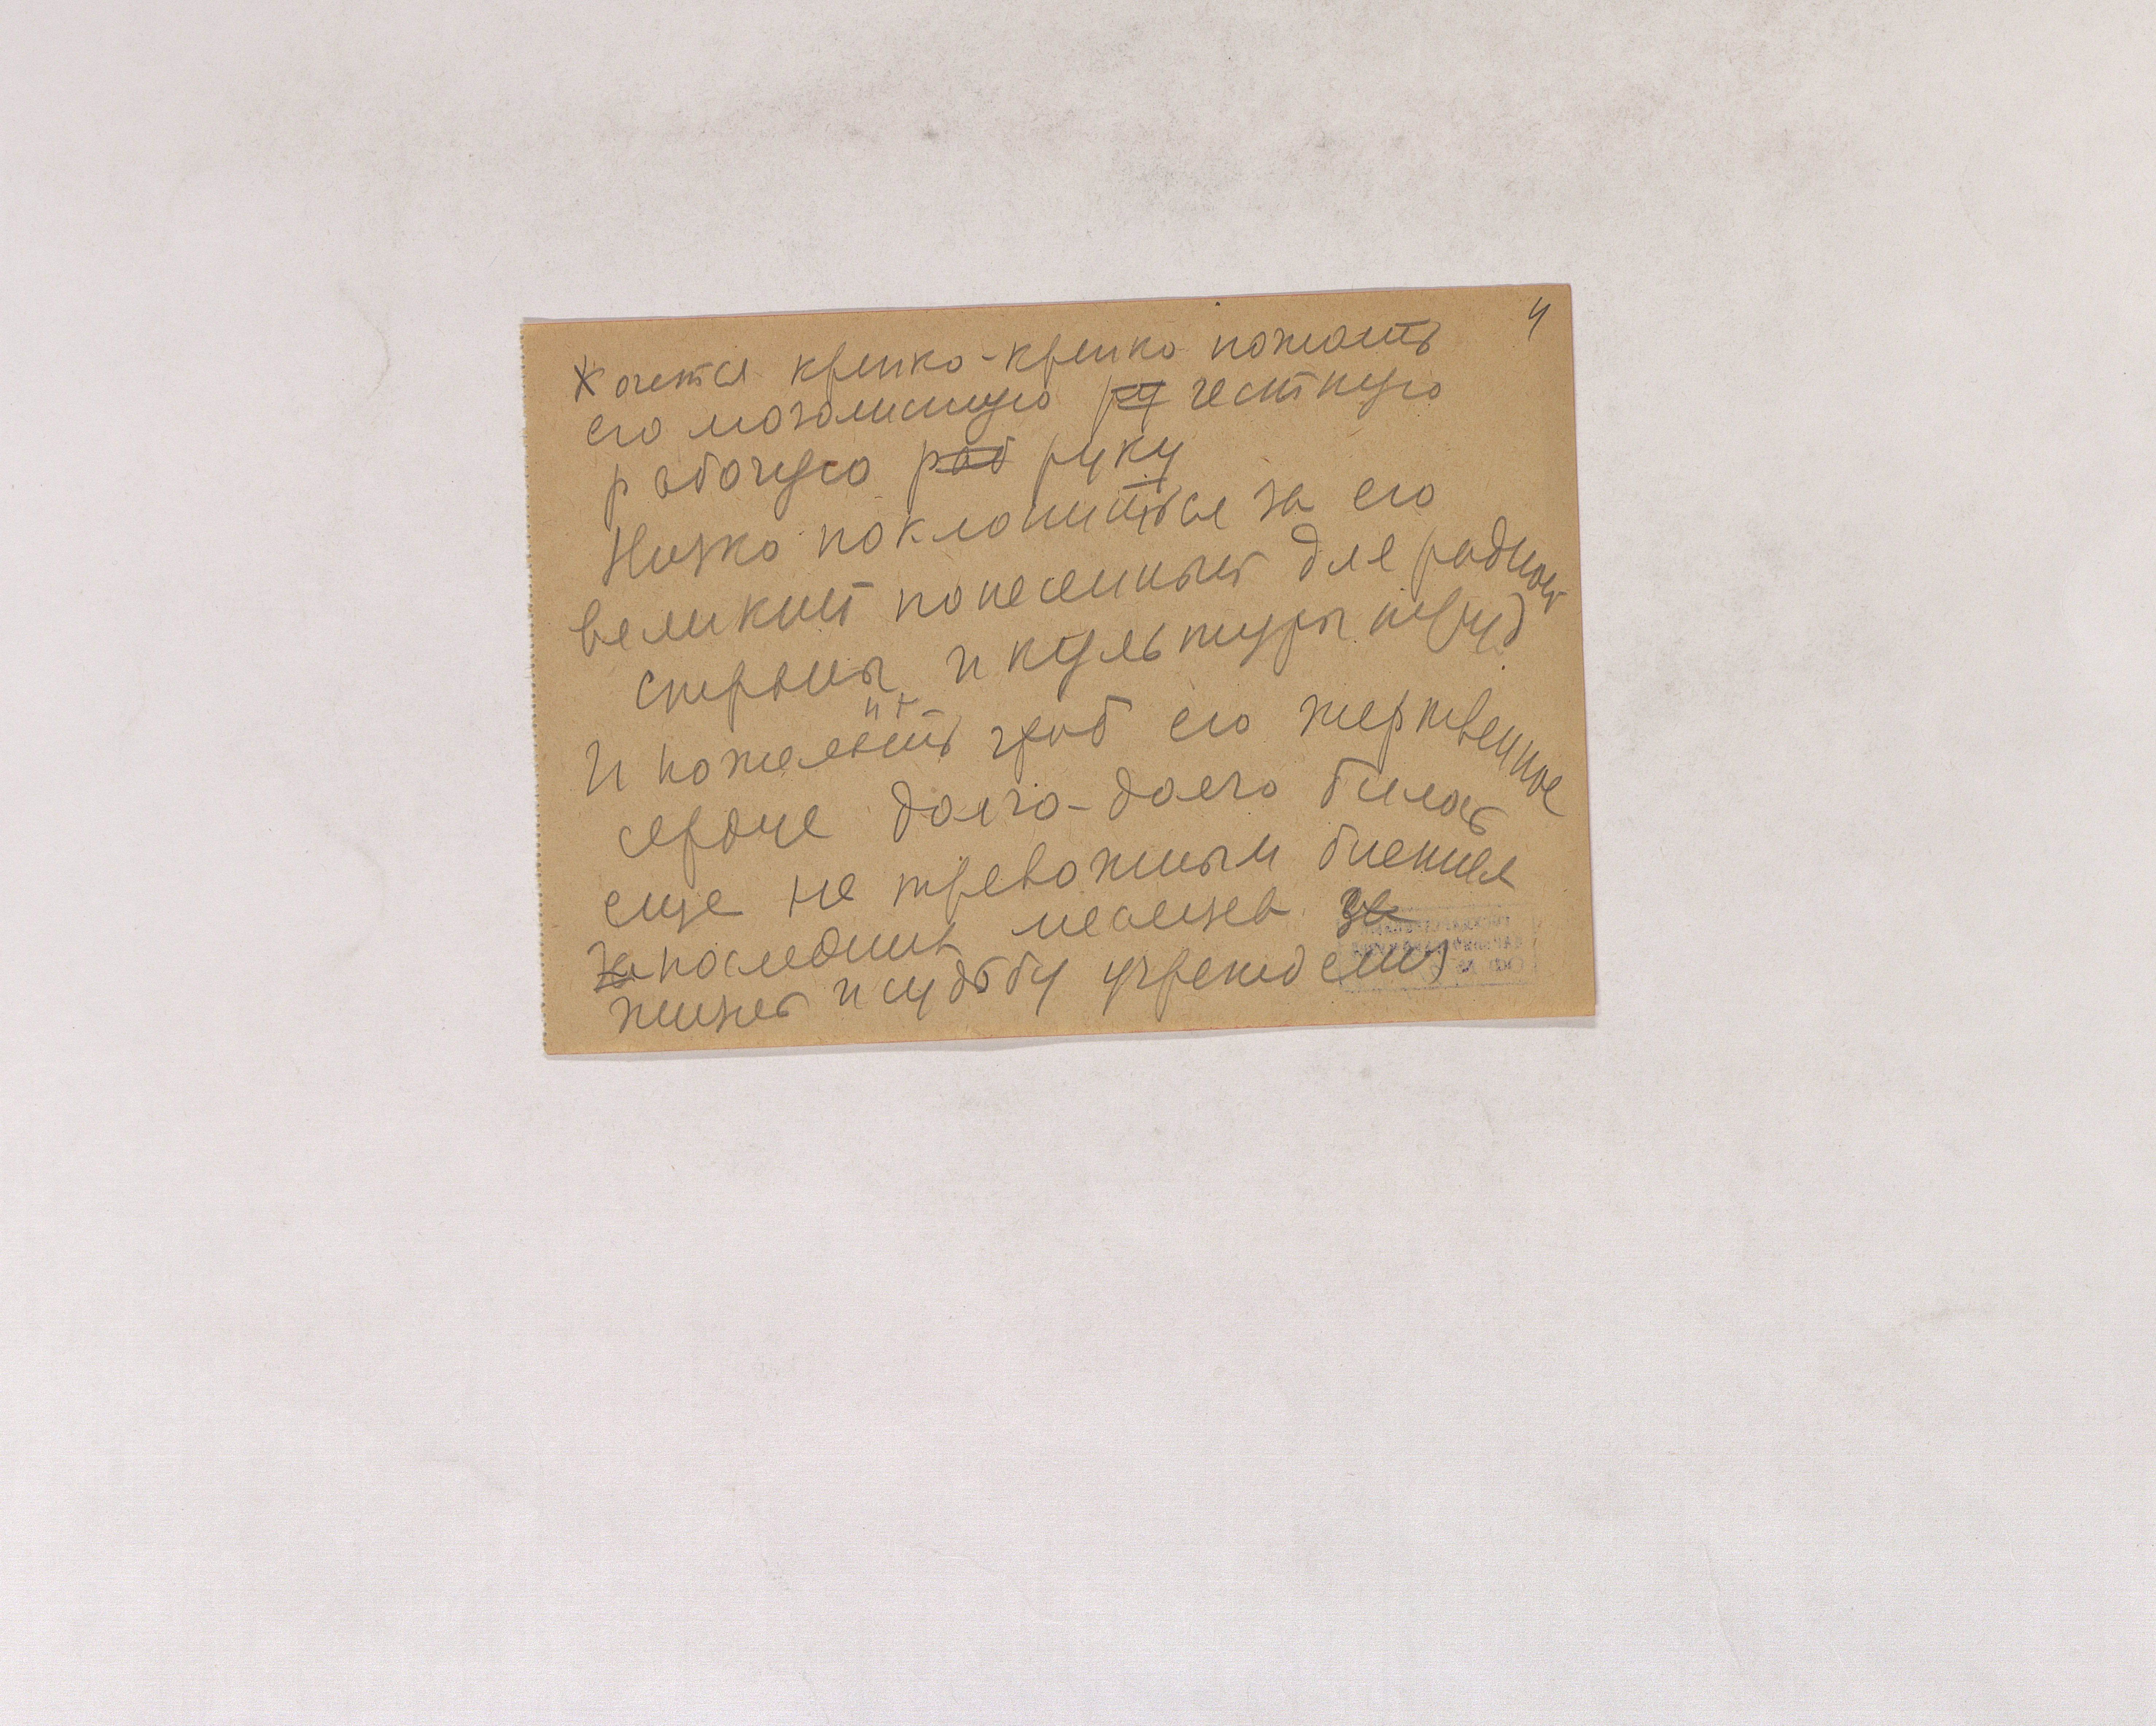 4
Хочется крепко-крепко пожать
его мозолистую ру честную
рабочую раб руку
Низко поклониться за его
великий понесенный для родной
страны и культуры труд
И пожелать чтоб его жертвенное
сердце долго-долго билось
еще не тревожным биением
последних месяцев за
жизнь и судьбу учреждения